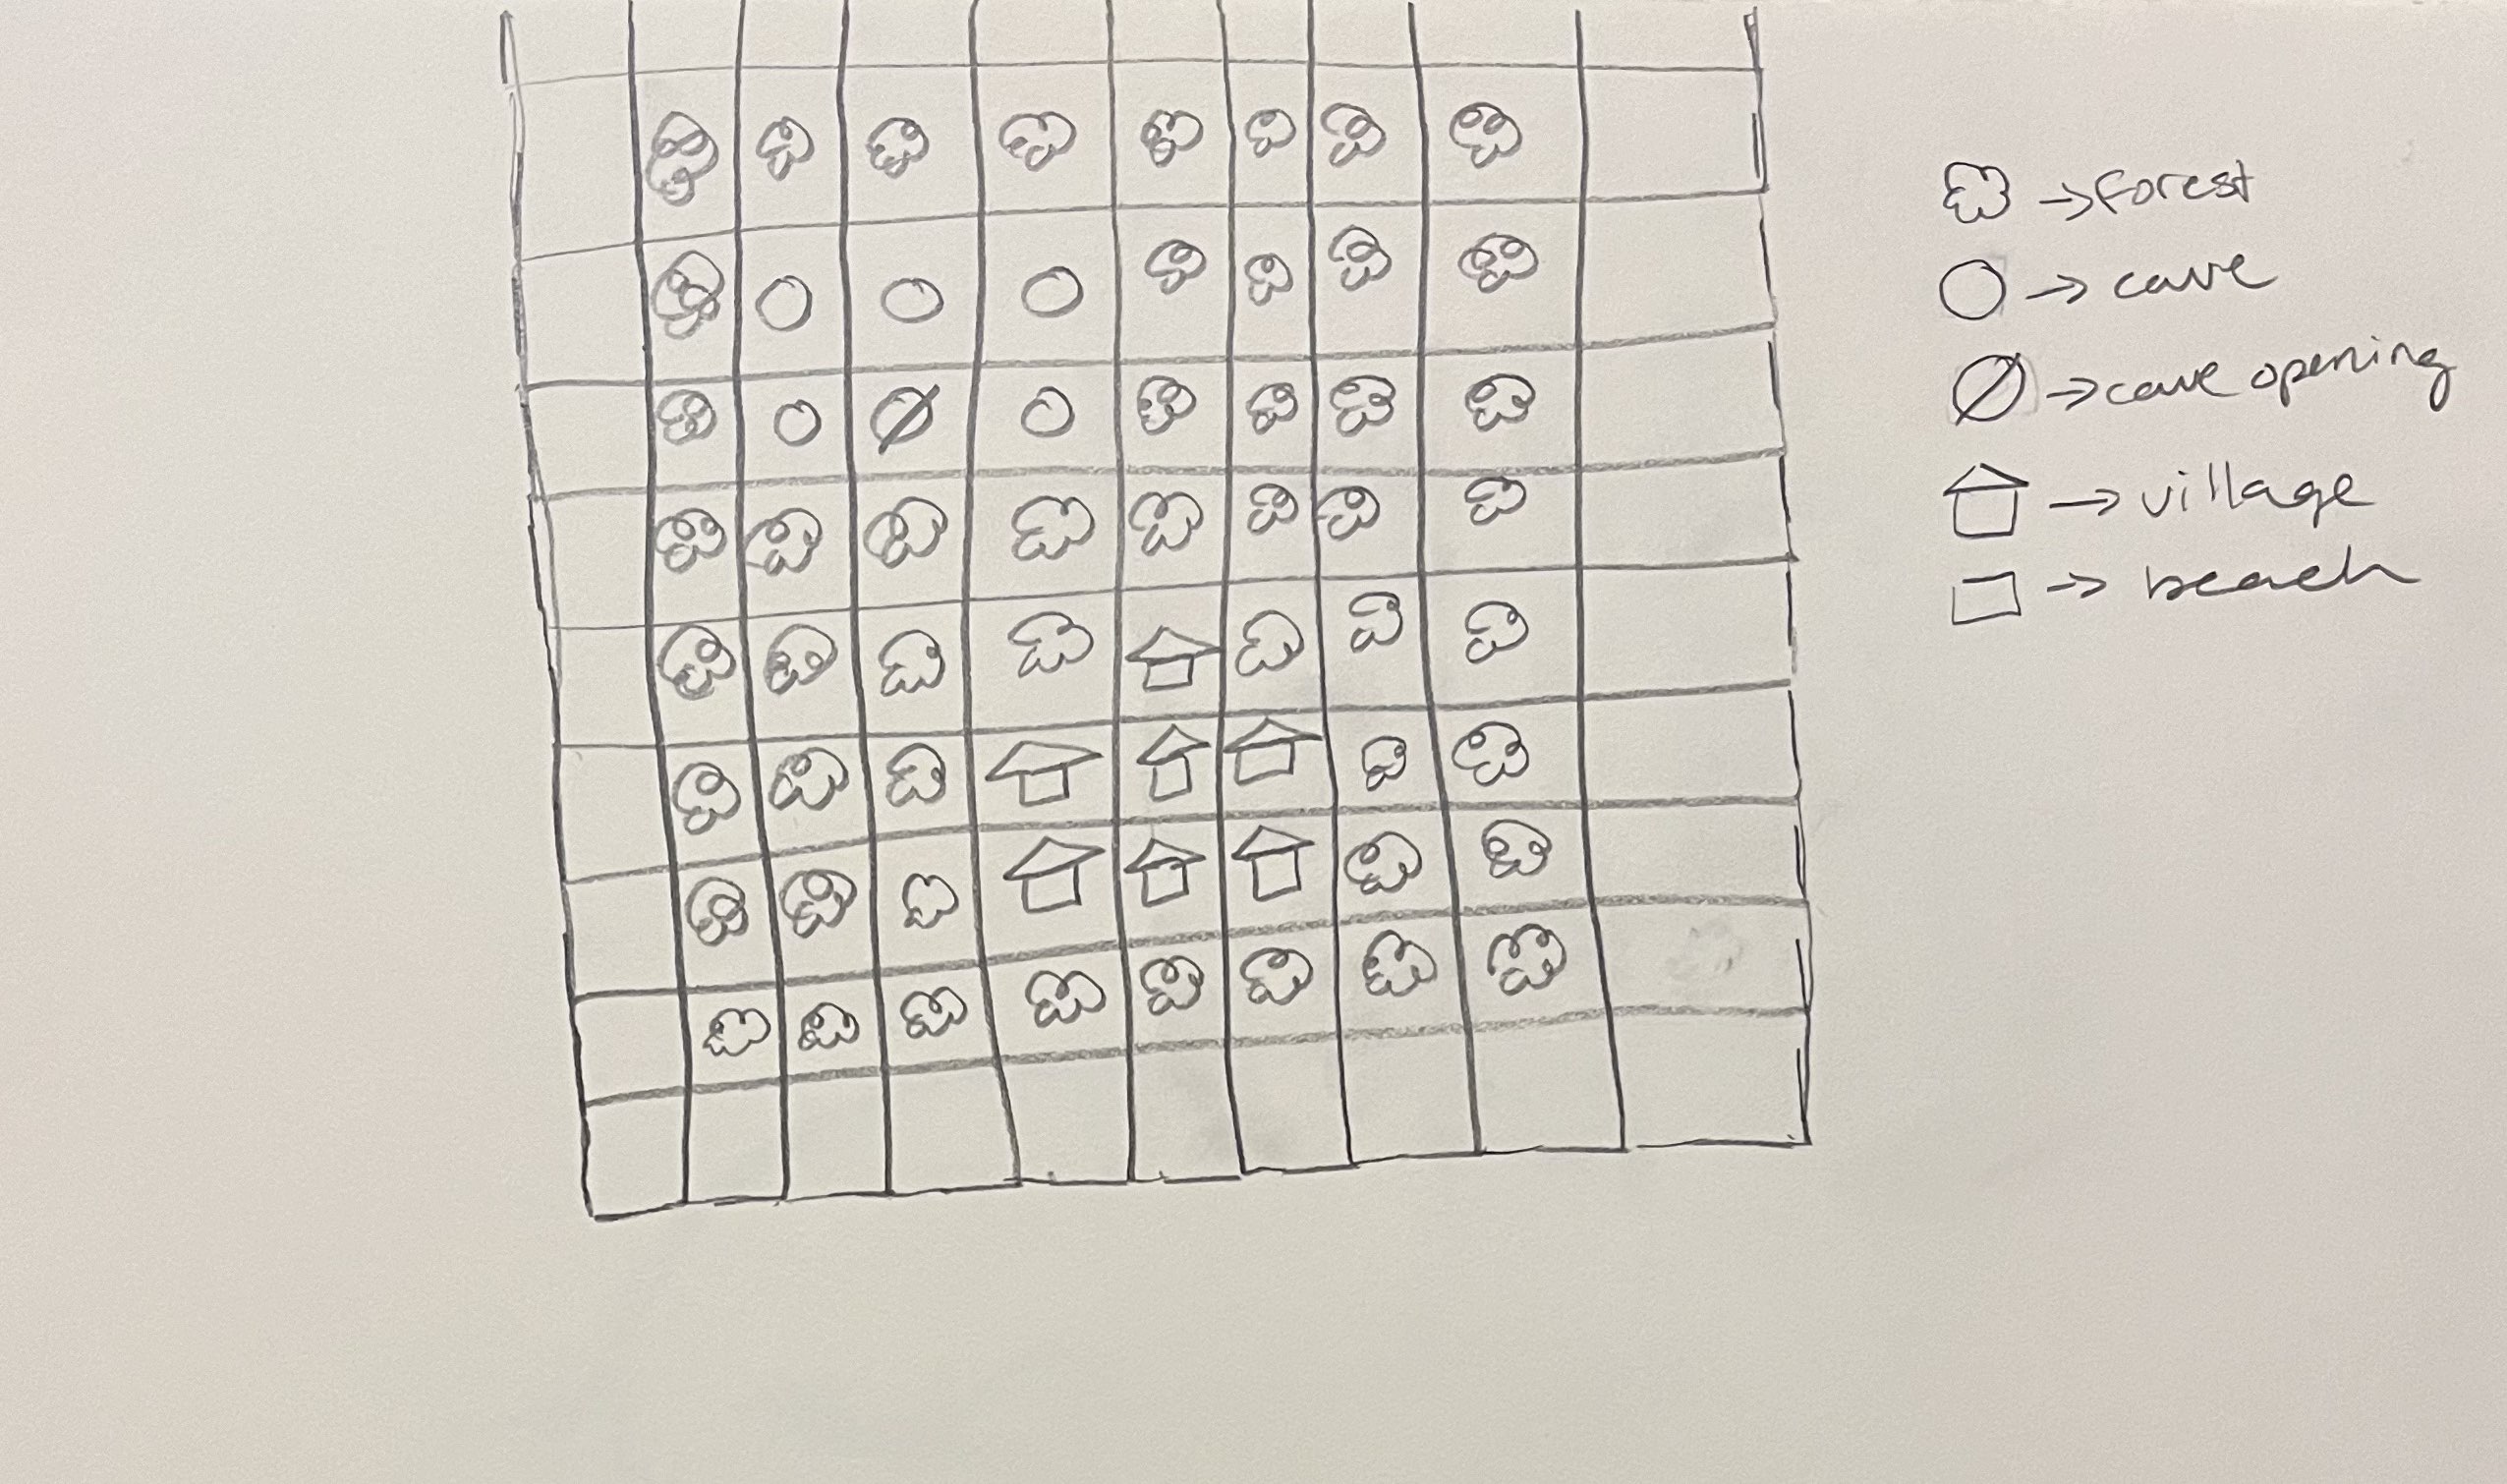 → forest
→ cave
→ cave opening
→ village
→ beach